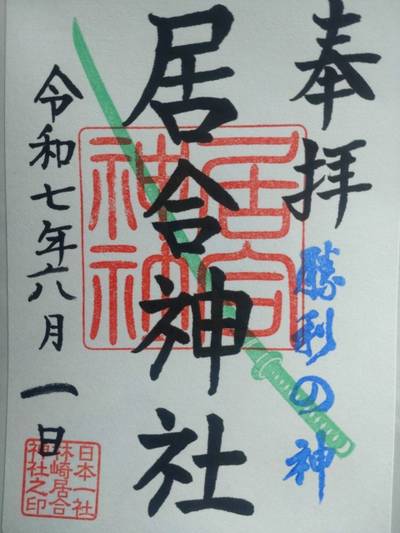 奉拝
勝利の神
居合神社
居合神社
令和七年六月一日
日本一社
林崎居合
神社之印